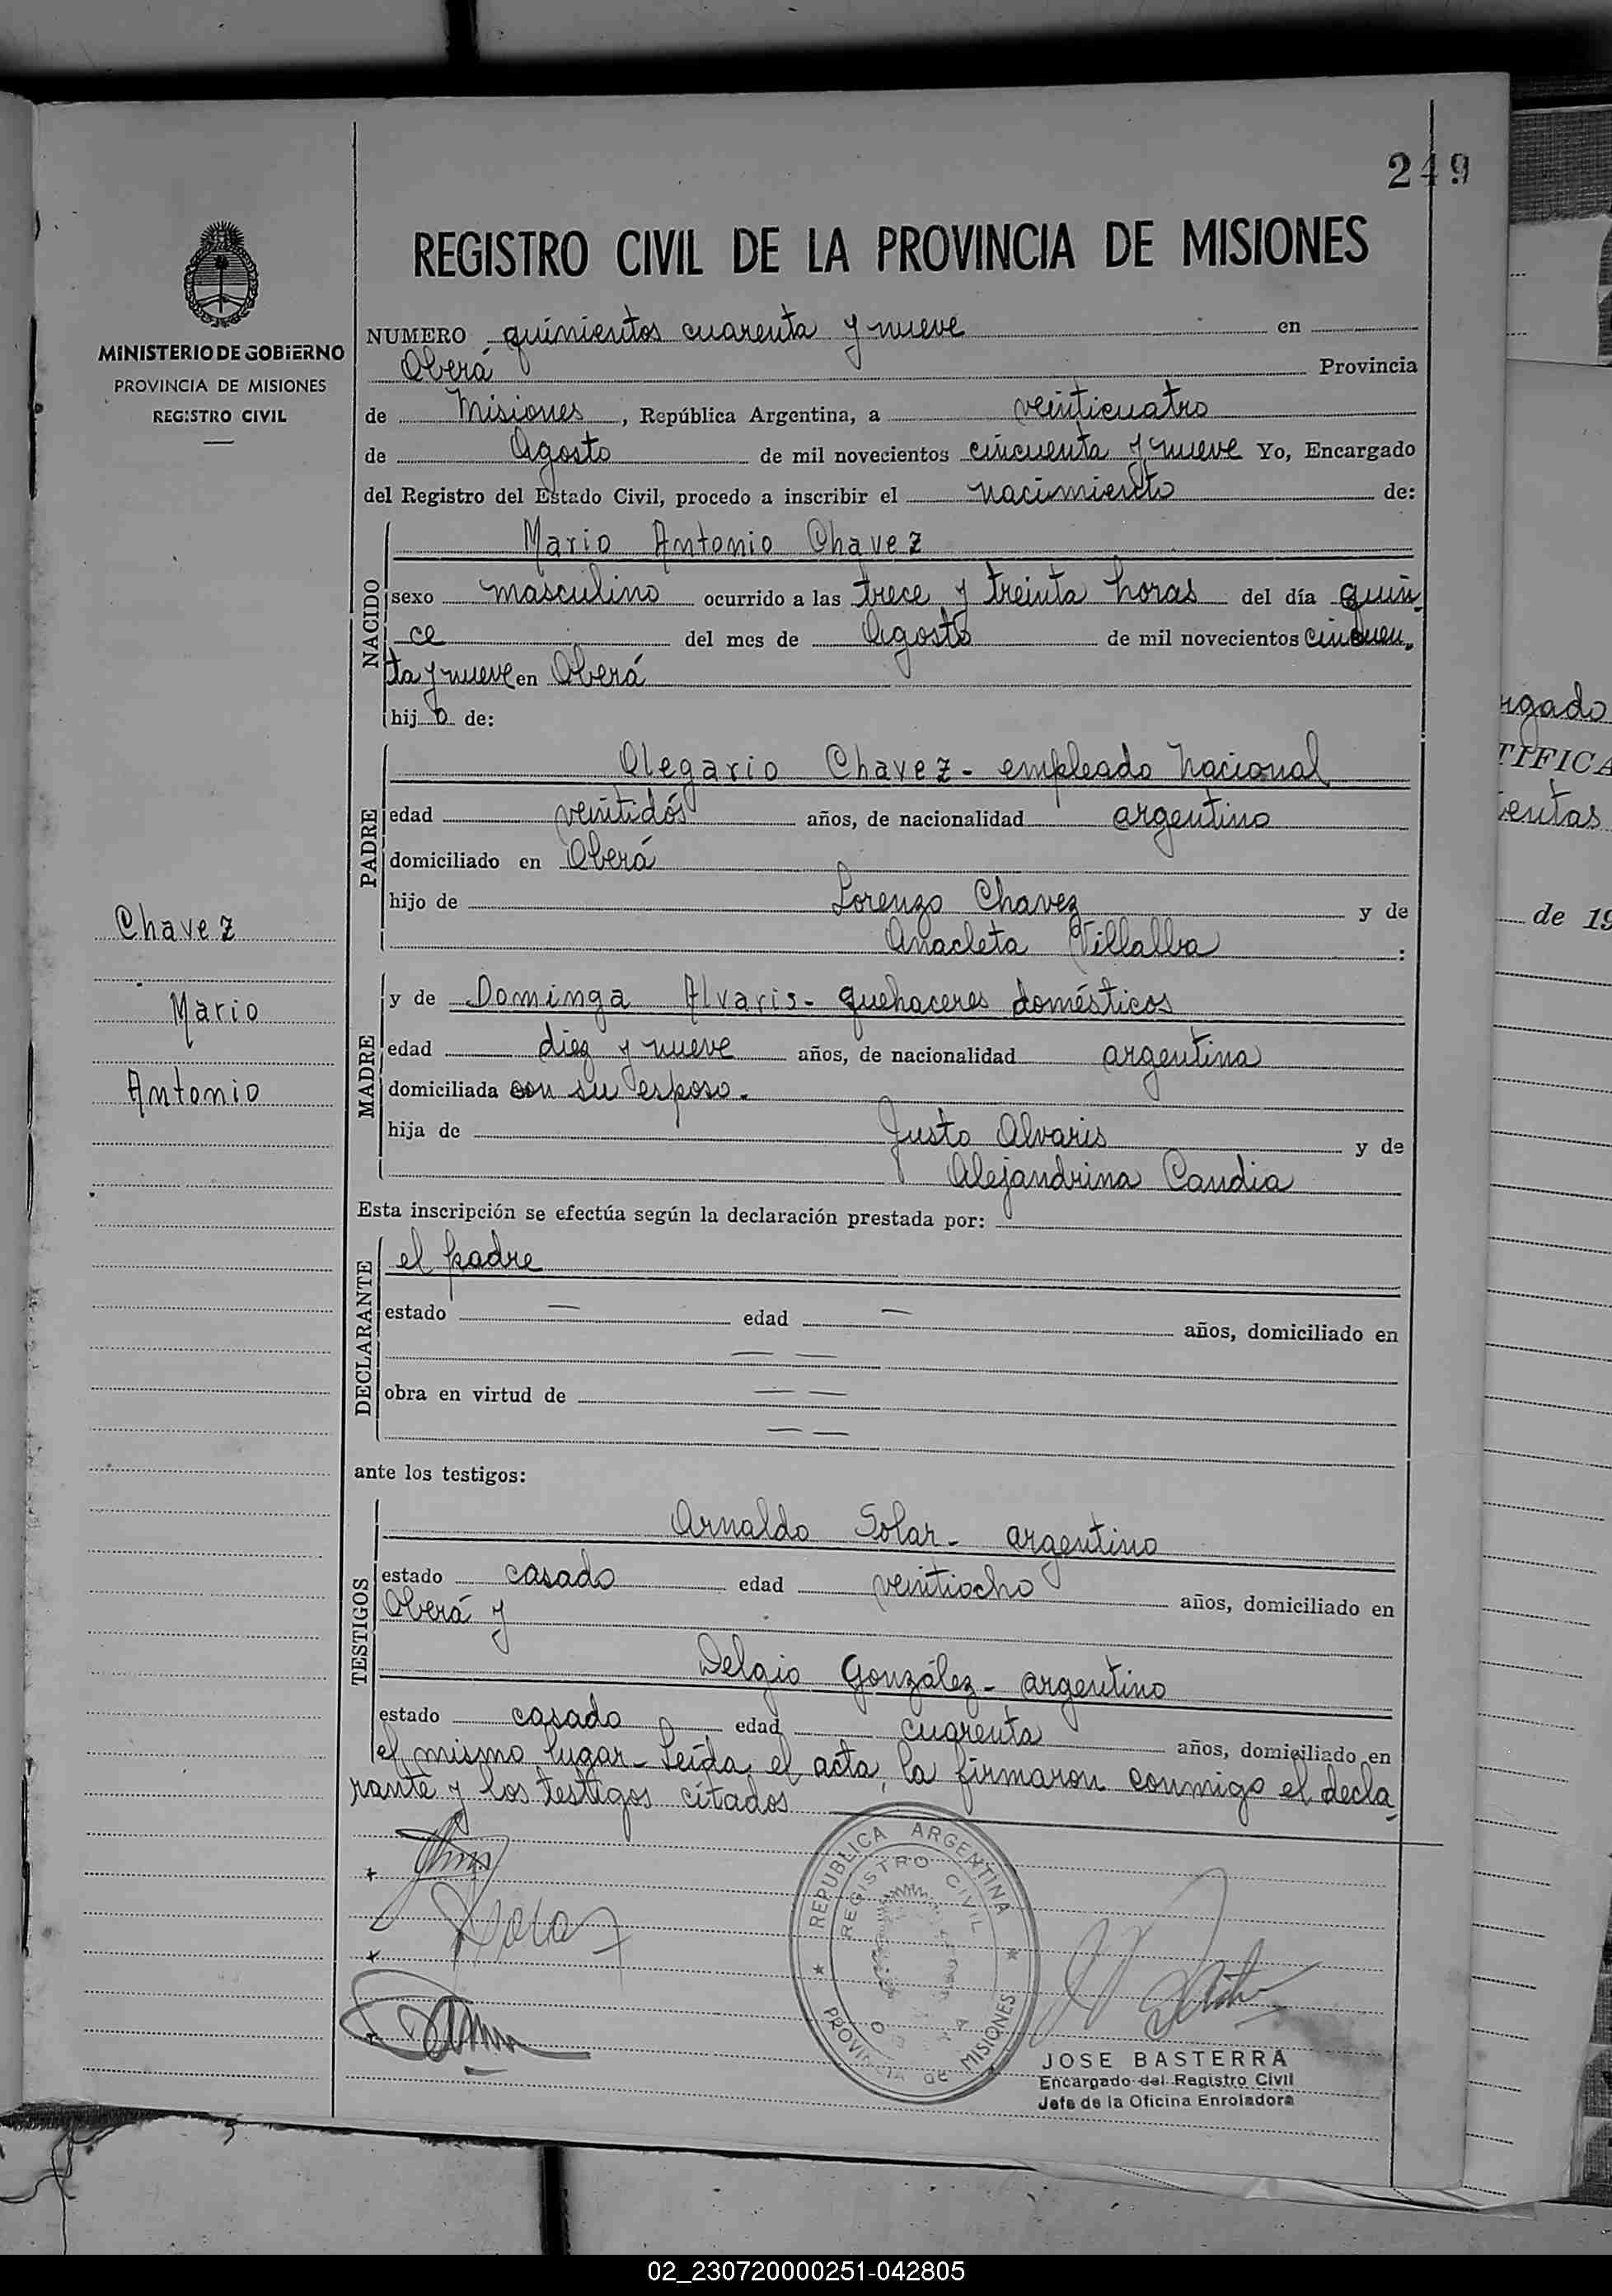 249
REGISTRO CIVIL DE LA PROVINCIA DE MISIONES
MINISTERIO DE GOBIERNO
PROVINCIA DE MISIONES
REGISTRO CIVIL
Chavez
Mario
Antonio
NUMERO quinientos cuarenta y nueve en
Oberá Provincia
de Misiones, República Argentina, a veinticuatro
de Agosto de mil novecientos cincuenta y nueve Yo, Encargado
del Registro del Estado Civil, procedo a inscribir el nacimiento de:
NACIDO
Mario Antonio Chavez
sexo masculino ocurrido a las trece y treinta horas del día quin-
ce del mes de Agosto de mil novecientos cincuen-
ta y nueve en Oberá
hijo de:
PADRE
Olegario Chavez - empleado Nacional
edad veintidós años, de nacionalidad argentino
domiciliado en Oberá
hijo de Lorenzo Chavez y de
Anacleta Villalba :
MADRE
y de Dominga Alvaris - quehaceres domésticos
edad diez y nueve años, de nacionalidad argentina
domiciliada con su esposo.
hija de Justo Alvaris y de
Alejandrina Candia
Esta inscripción se efectúa según la declaración prestada por:
DECLARANTE
el padre
estado — edad — años, domiciliado en
— —
obra en virtud de — —
— —
ante los testigos:
TESTIGOS
Arnaldo Solar - argentino
estado casado edad veintiocho años, domiciliado en
Oberá y
Delgio González - argentino
estado casado edad cuarenta años, domiciliado en
el mismo lugar - Leída el acta, la firmaron conmigo el decla-
rante y los testigos citados
REPUBLICA ARGENTINA
REGISTRO CIVIL
PROVINCIA DE MISIONES
JOSE BASTERRA
Encargado del Registro Civil
Jefe de la Oficina Enroladora
rgado
TIFICA
ientas
de 19
02_230720000251-042805